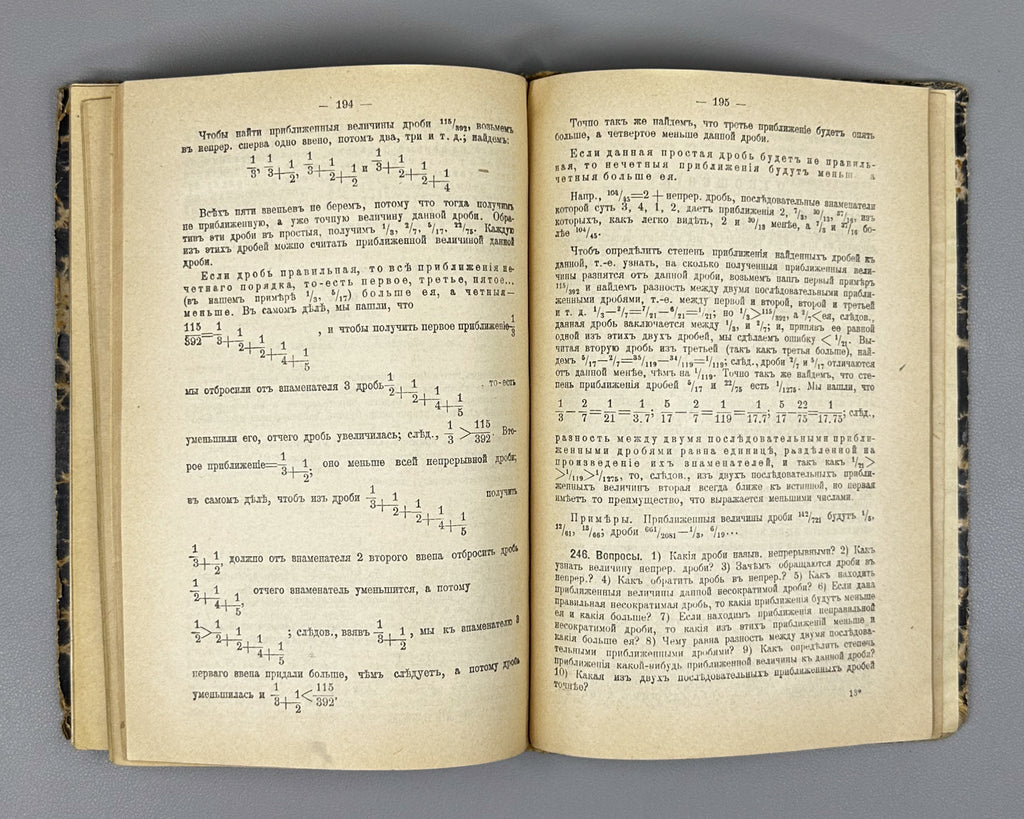 — 194 —
Чтобы найти приближенныя величины дроби 115/392, возьмемъ
въ непрер. сперва одно звено, потомъ два, три и т. д.; найдемъ:
1/3, 1/3+1/2, 1/3+1/2+1/2 и 1/3+1/2+1/2+1/4
Всѣхъ пяти звеньевъ не беремъ, потому что тогда получим
не приближенную, а уже точную величину данной дроби. Обра-
тивъ эти дроби въ простыя, получимъ 1/3, 2/7, 5/17, 22/75. Каждую
изъ этихъ дробей можно считать приближенной величиной данной
дроби.
Если дробь правильная, то всѣ приближенія не-
четнаго порядка, то-есть первое, третье, пятое...
(въ вашемъ примѣрѣ 1/3, 5/17) больше ея, а четныя—
меньше. Въ самомъ дѣлѣ, мы нашли, что
115/392=1/3+1/2+1/2+1/4+1/5, и чтобы получить первое приближеніе 1/3
мы отбросили отъ знаменателя 3 дробь 1/2+1/2+1/4+1/5, то-есть
уменьшили его, отчего дробь увеличилась; слѣд., 1/3 > 115/392. Вто-
рое приближеніе=1/3+1/2; оно меньше всей непрерывной дроби;
въ самомъ дѣлѣ, чтобъ изъ дроби 1/3+1/2+1/2+1/4+1/5 получить
1/3+1/2, должно отъ знаменателя 2 второго звена отбросить дробь
1/2+1/4+1/5, отчего знаменатель уменьшится, а потому
1/2>1/2+1/2+1/4+1/5; слѣдов., взявъ 1/3+1/2, мы къ знаменателю 3
перваго звена придали больше, чѣмъ слѣдуетъ, а потому дробь
уменьшилась и 1/3+1/2<115/392.
— 195 —
Точно так же найдемъ, что третье приближеніе будетъ опять
больше, а четвертое меньше данной дроби.
Если данная простая дробь будетъ не правиль-
ная, то нечетныя приближенія будутъ меньш а
четныя больше ея.
Напр., 104/45=2+непрер. дробь, послѣдовательные знаменатели
которой суть 3, 4, 1, 2, даетъ приближенія 2, 7/3, 30/13, 37/16, изъ
которыхъ, какъ легко видѣть, 2 и 30/13 менѣе, а 7/3 и 37/16 бо-
лѣе 104/45.
Чтобъ опредѣлить степень приближенія найденныхъ дробей къ
данной, т.-е. узнать, на сколько полученныя приближенныя вели-
чины разнятся отъ данной дроби, возьмемъ нашъ первый примѣръ
115/392 и найдемъ разность между двумя послѣдовательными прибли-
женными дробями, т.-е. между первой и второй, второй и третьей
и т. д. 1/3—2/7=7/21—6/21=1/21; но 1/3>115/392, а 2/7<ея, слѣдов.,
данная дробь заключается между 1/3, и 2/7; и, принявъ ее равной
одной изъ этихъ двухъ дробей, мы сдѣлаемъ ошибку < 1/21. Вы-
читая вторую дробь изъ третьей (такъ какъ третья больше), най-
демъ 5/17—2/7=35/119—34/119=1/119; слѣд., дроби 2/7 и 5/17 отличаются
отъ данной менѣе, чѣмъ на 1/119. Точно такъ же найдемъ, что сте-
пень приближенія дробей 5/17 и 22/75 есть 1/1275. Мы нашли, что
1/3—2/7=1/21=1/3.7; 5/17—2/7=1/119=1/17.7; 5/17—22/75=1/17.75; слѣд.,
разность между двумя послѣдовательными прибли-
женными дробями равна единицѣ, раздѣленной на
произведеніе ихъ знаменателей, и такъ какъ 1/21>
>1/119>1/1275, то, слѣдов., изъ двухъ послѣдовательныхъ прибли-
женныхъ величинъ вторая всегда ближе къ истинной, но первая
имѣетъ то преимущество, что выражается меньшими числами.
Примѣры. Приближенныя величины дроби 142/721 будутъ 1/5,
12/61, 13/66; дроби 661/2081—1/3, 6/19...
246. Вопросы. 1) Какія дроби назыв. непрерывными? 2) Какъ
узнать величину непрер. дроби? 3) Зачѣмъ обращаются дроби въ
непрер.? 4) Какъ обратить дробь въ непрер.? 5) Какъ находить
приближенныя величины данной несократимой дроби? 6) Если дана
правильная несократимая дробь, то какія приближенія будутъ меньше
ея и какія больше? 7) Если находимъ приближенія неправильной
несократимой дроби, то какія изъ этихъ приближеній меньше и
какія больше ея? 8) Чему равна разность между двумя послѣдова-
тельными приближенными дробями? 9) Какъ опредѣлить степень
приближенія какой-нибудь приближенной величины къ данной дроби?
10) Какая изъ двухъ послѣдовательныхъ приближенныхъ дробей
точнѣе?
13*